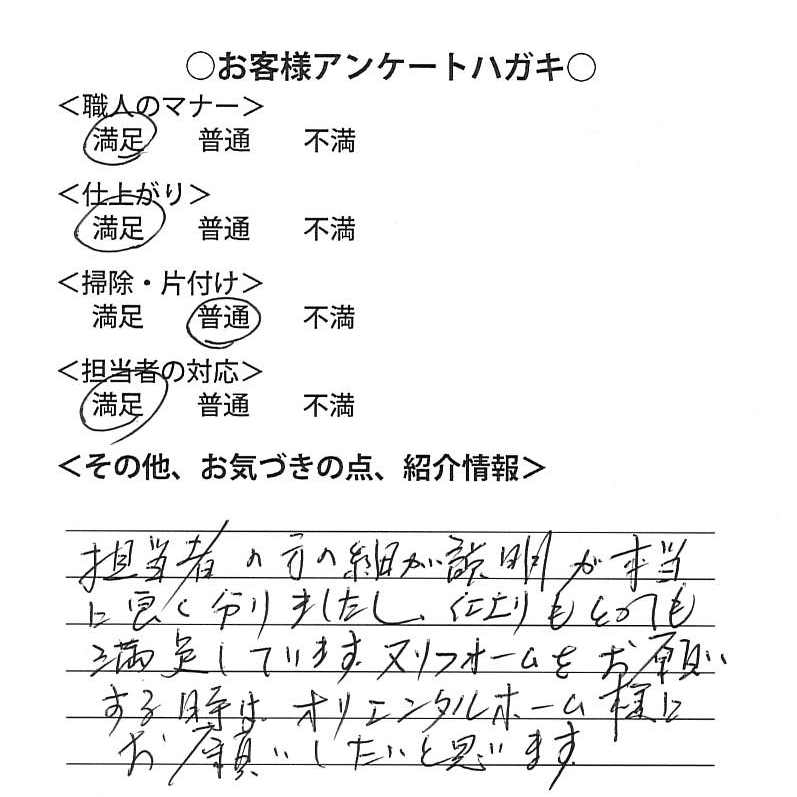 ○お客様アンケートハガキ○
＜職人のマナー＞
満足　普通　不満
＜仕上がり＞
満足　普通　不満
＜掃除・片付け＞
満足　普通　不満
＜担当者の対応＞
満足　普通　不満
＜その他、お気づきの点、紹介情報＞
担当者の方の細かい説明が本当
に良く分りましたし、仕上りもとっても
満足しています。又リフォームをお願い
する時は、オリエンタルホーム様に
お願いしたいと思います。